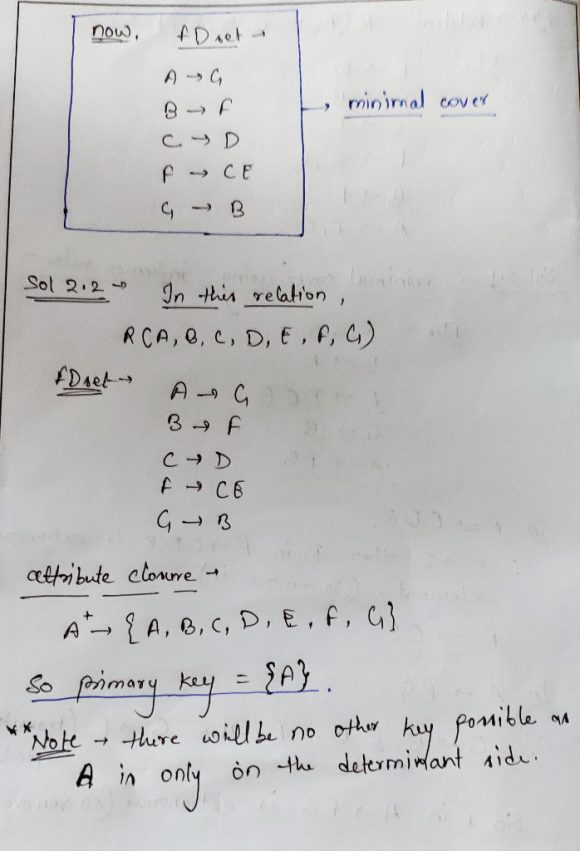 now, fD set →
A → G
B → F
C → D
F → CE
G → B
→ minimal cover
Sol 2.2 → In this relation,
R(A, B, C, D, E, F, G)
fDset →
A → G
B → F
C → D
F → CE
G → B
attribute closure →
A⁺ → {A, B, C, D, E, F, G}
So primary key = {A}.
** Note → there will be no other key possible as
A is only on the determinant side.